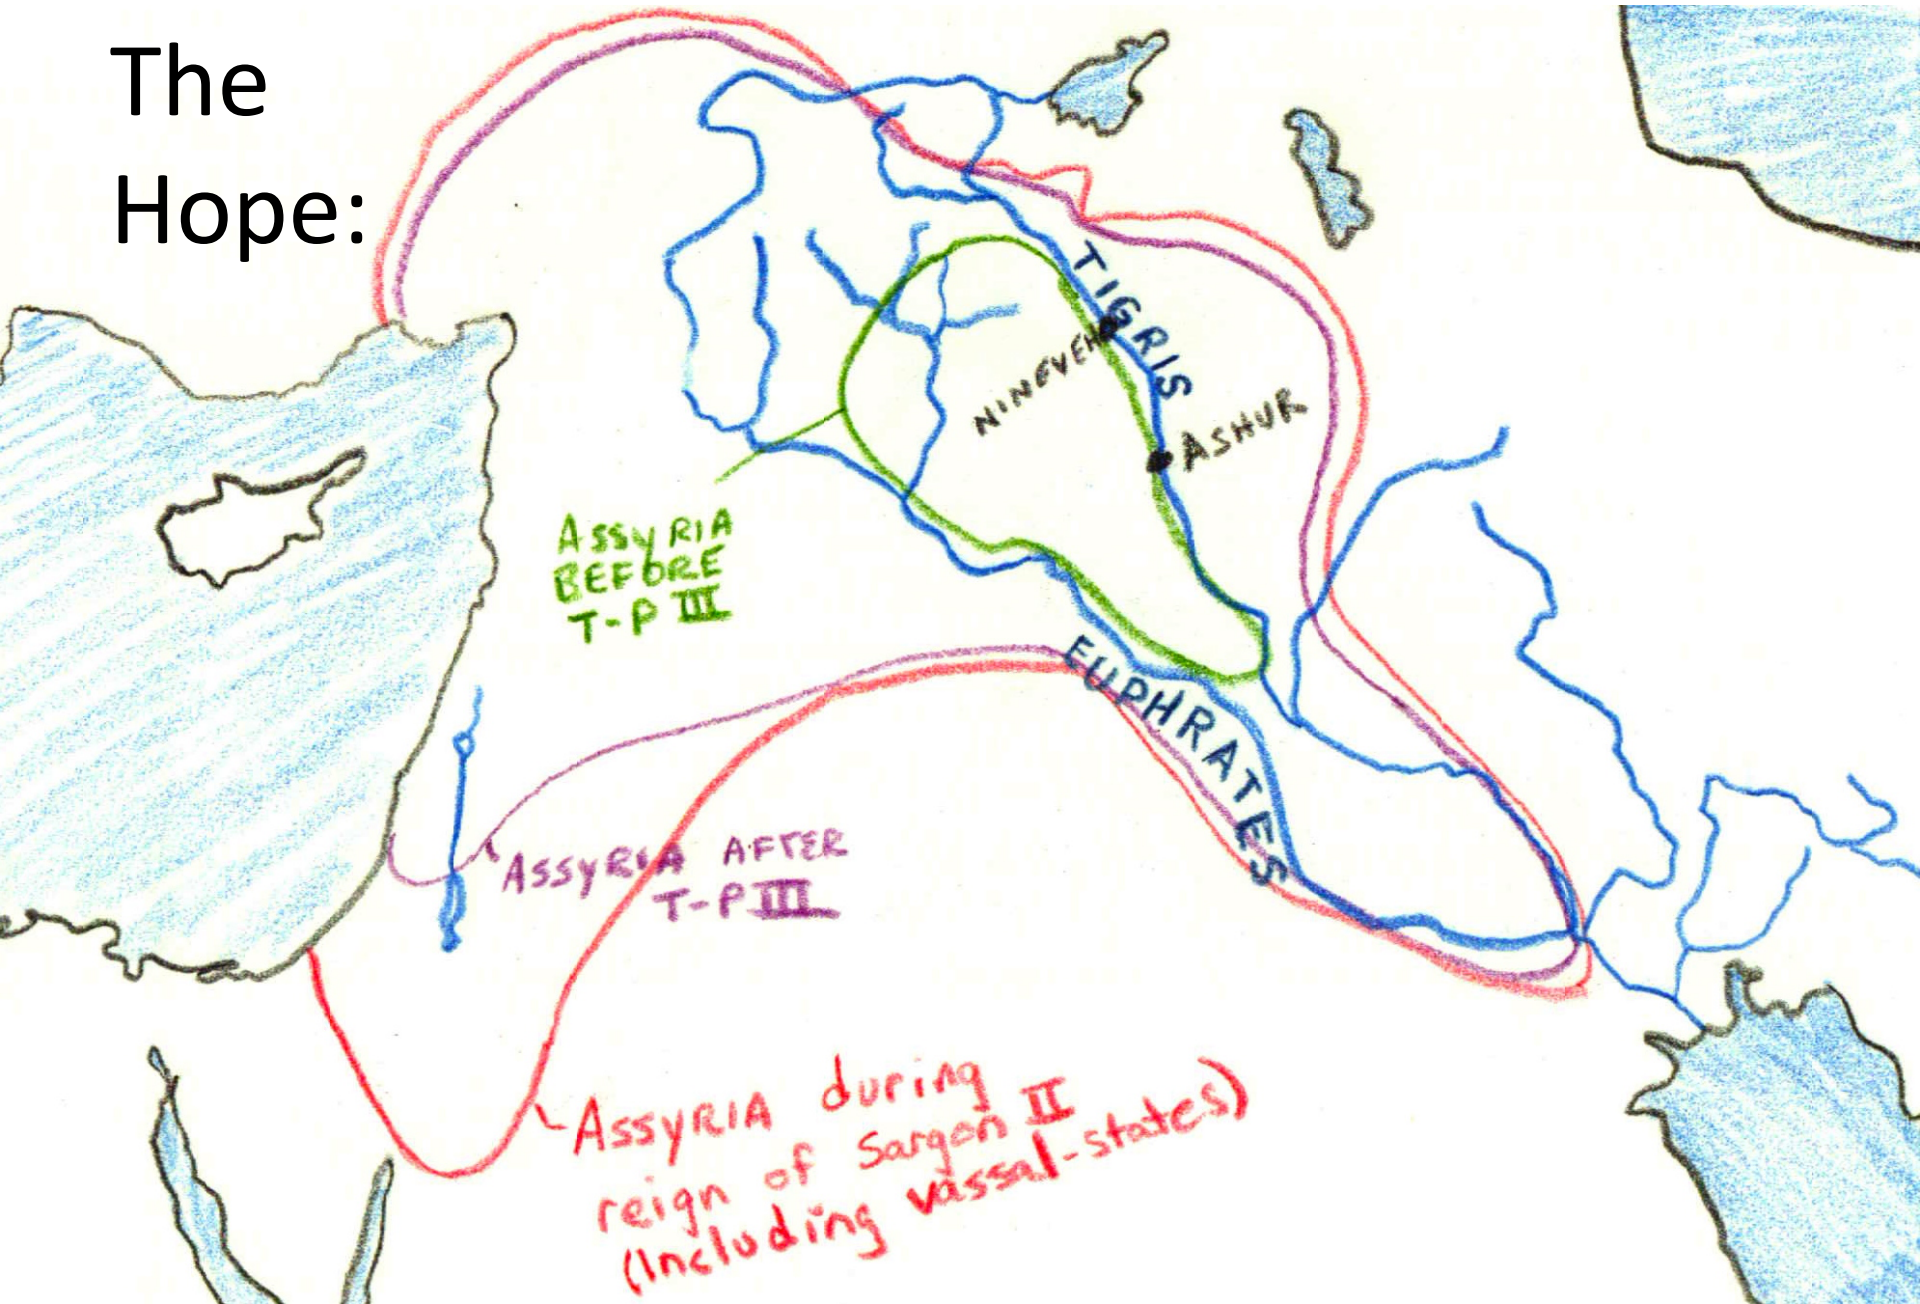 The
Hope:
TIGRIS
NINEVEH
ASHUR
ASSYRIA
BEFORE
T-P III
EUPHRATES
ASSYRIA AFTER
T-P III
ASSYRIA during
reign of Sargon II
(Including vassal-states)